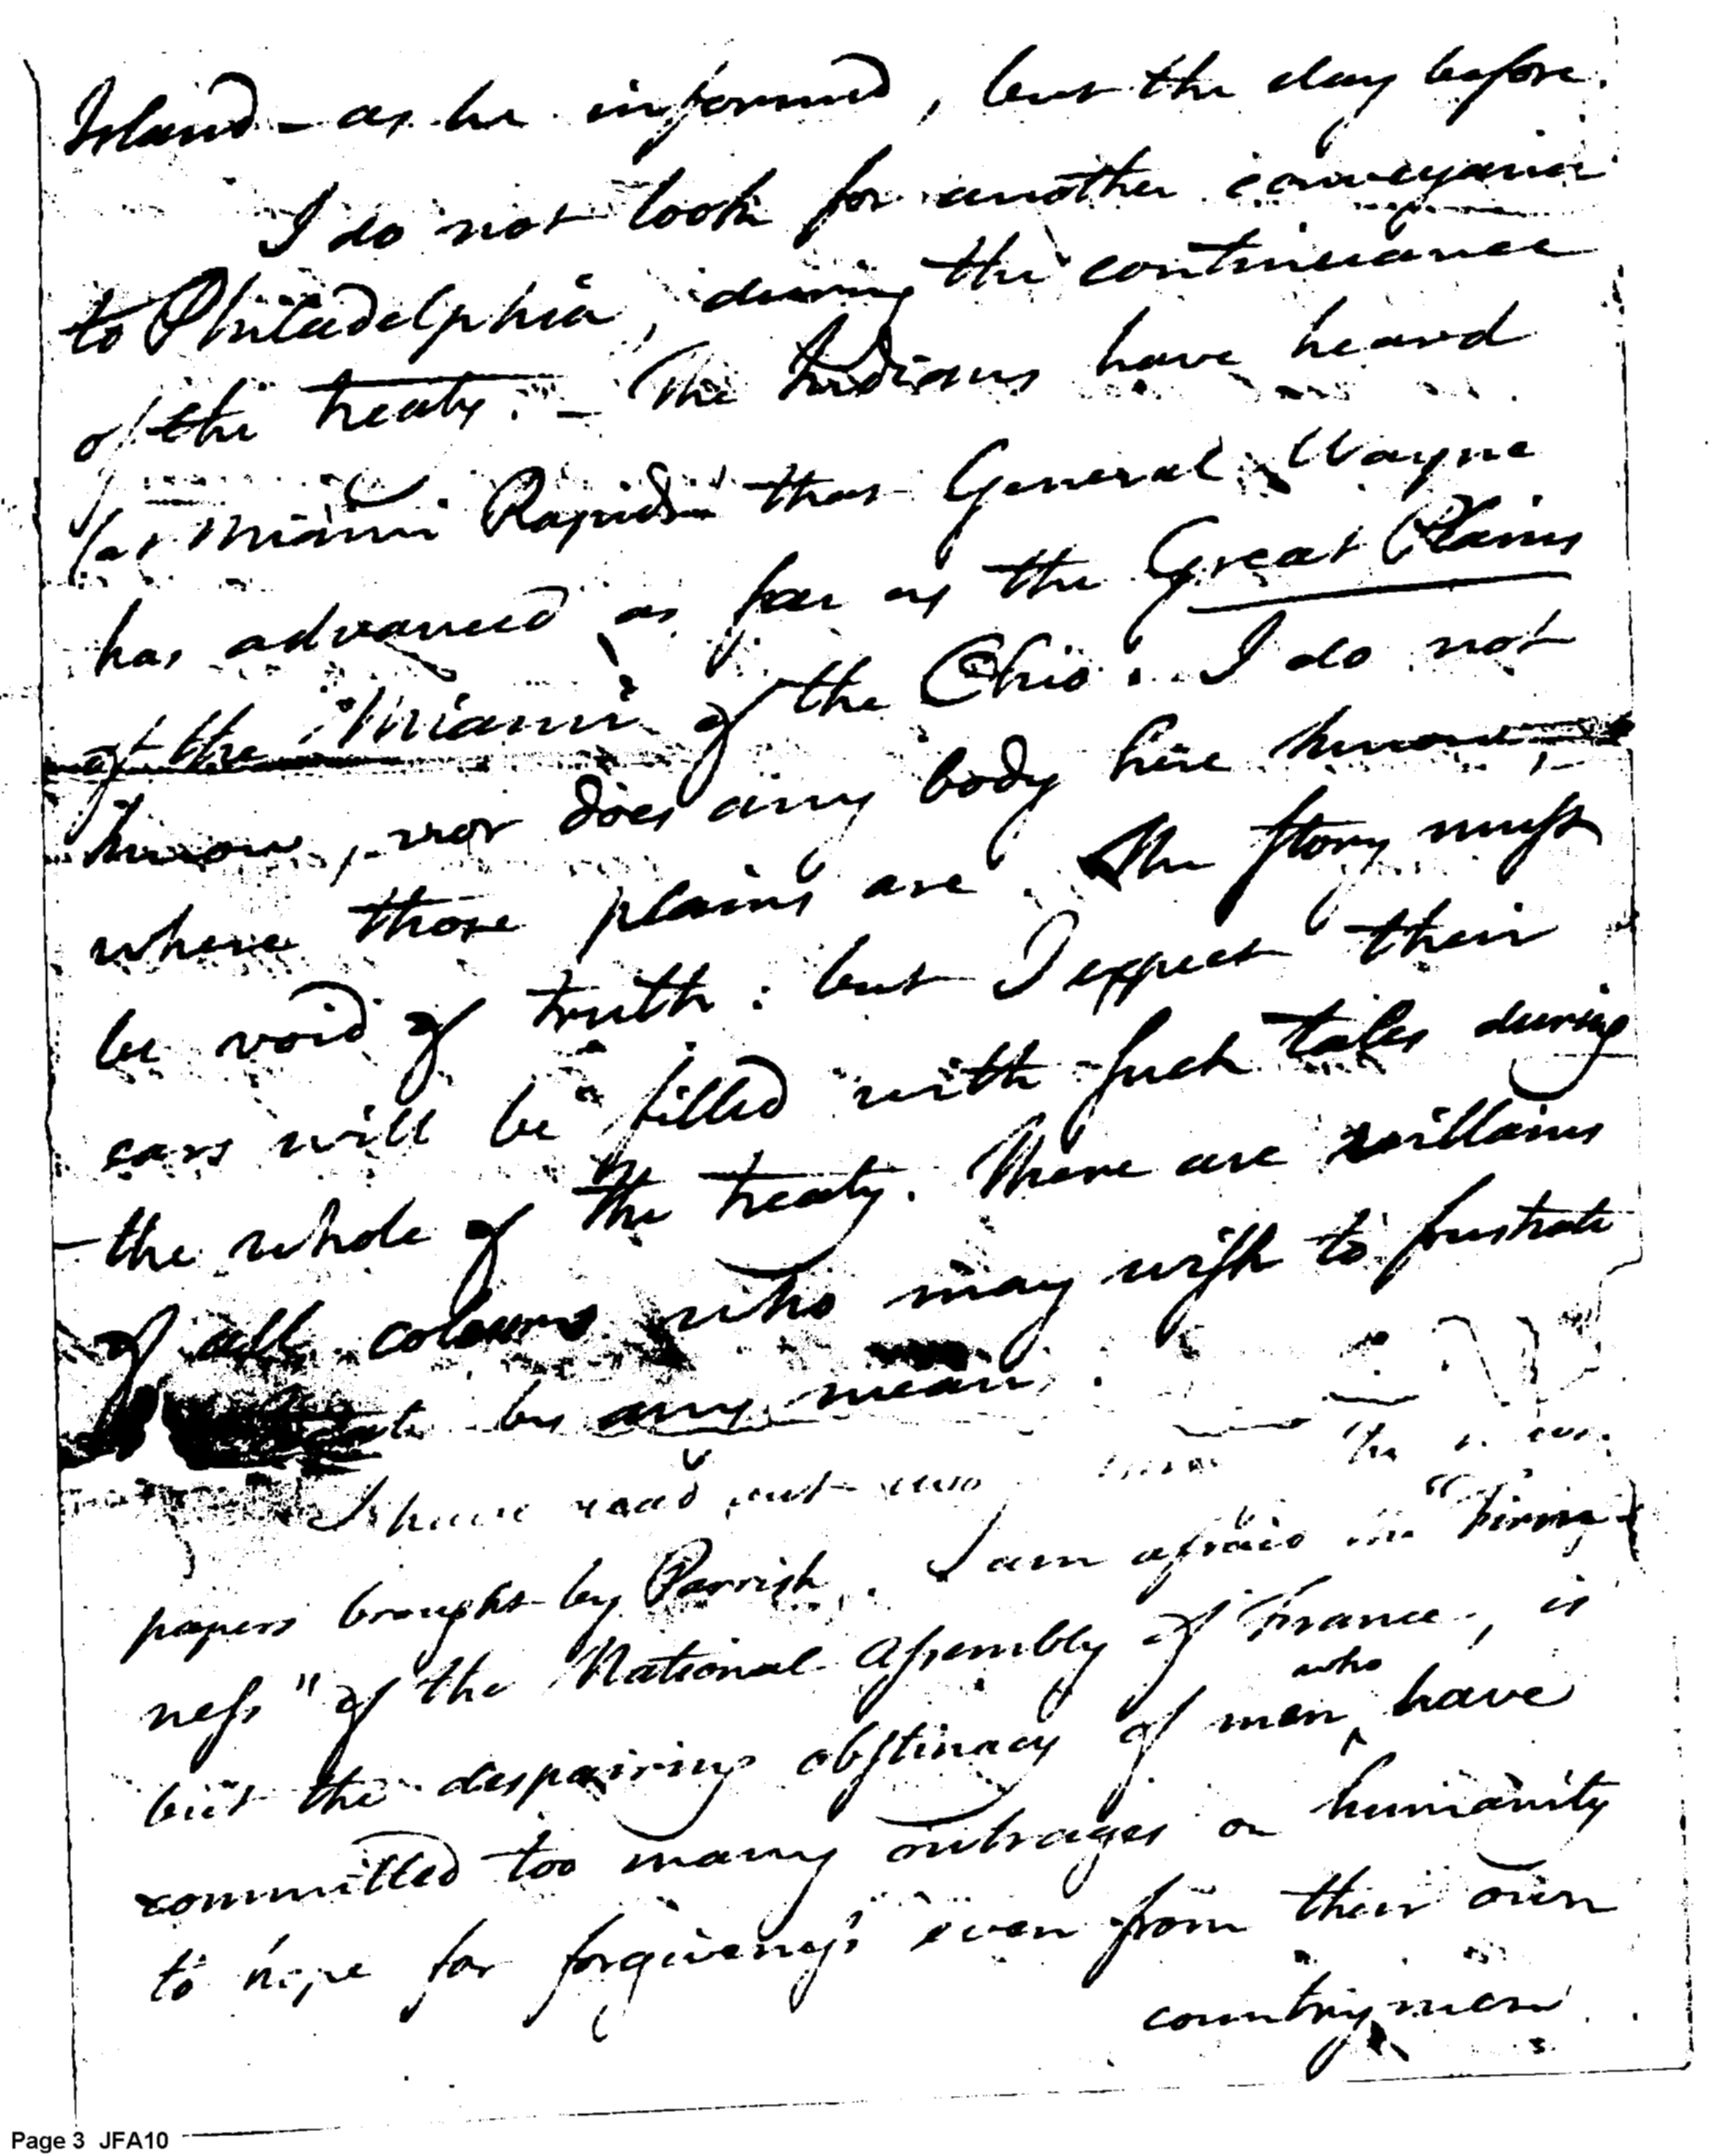 Island – as he informed, but the day before.
I do not look for another conveyance
to Philadelphia, during the continuance
of the treaty. – The Indians have heard
(at Miami Rapids that General Wayne
has advanced as far as the Great Plains
of the Miami of the Ohio. I do not
know, nor does any body here know,
where those plains are. The story must
be void of truth: but I expect their
ears will be filled with such tales during
the whole of the treaty. There are villains
of all colours who may wish to frustrate
by any means.
I have read but the
papers brought by Parrish. I am afraid the "Firm-
ness" of the National Assembly of France, is
but the despairing obstinacy of men who have
committed too many outrages on humanity
to hope for forgiveness even from their own
countrymen
Page 3 JFA10